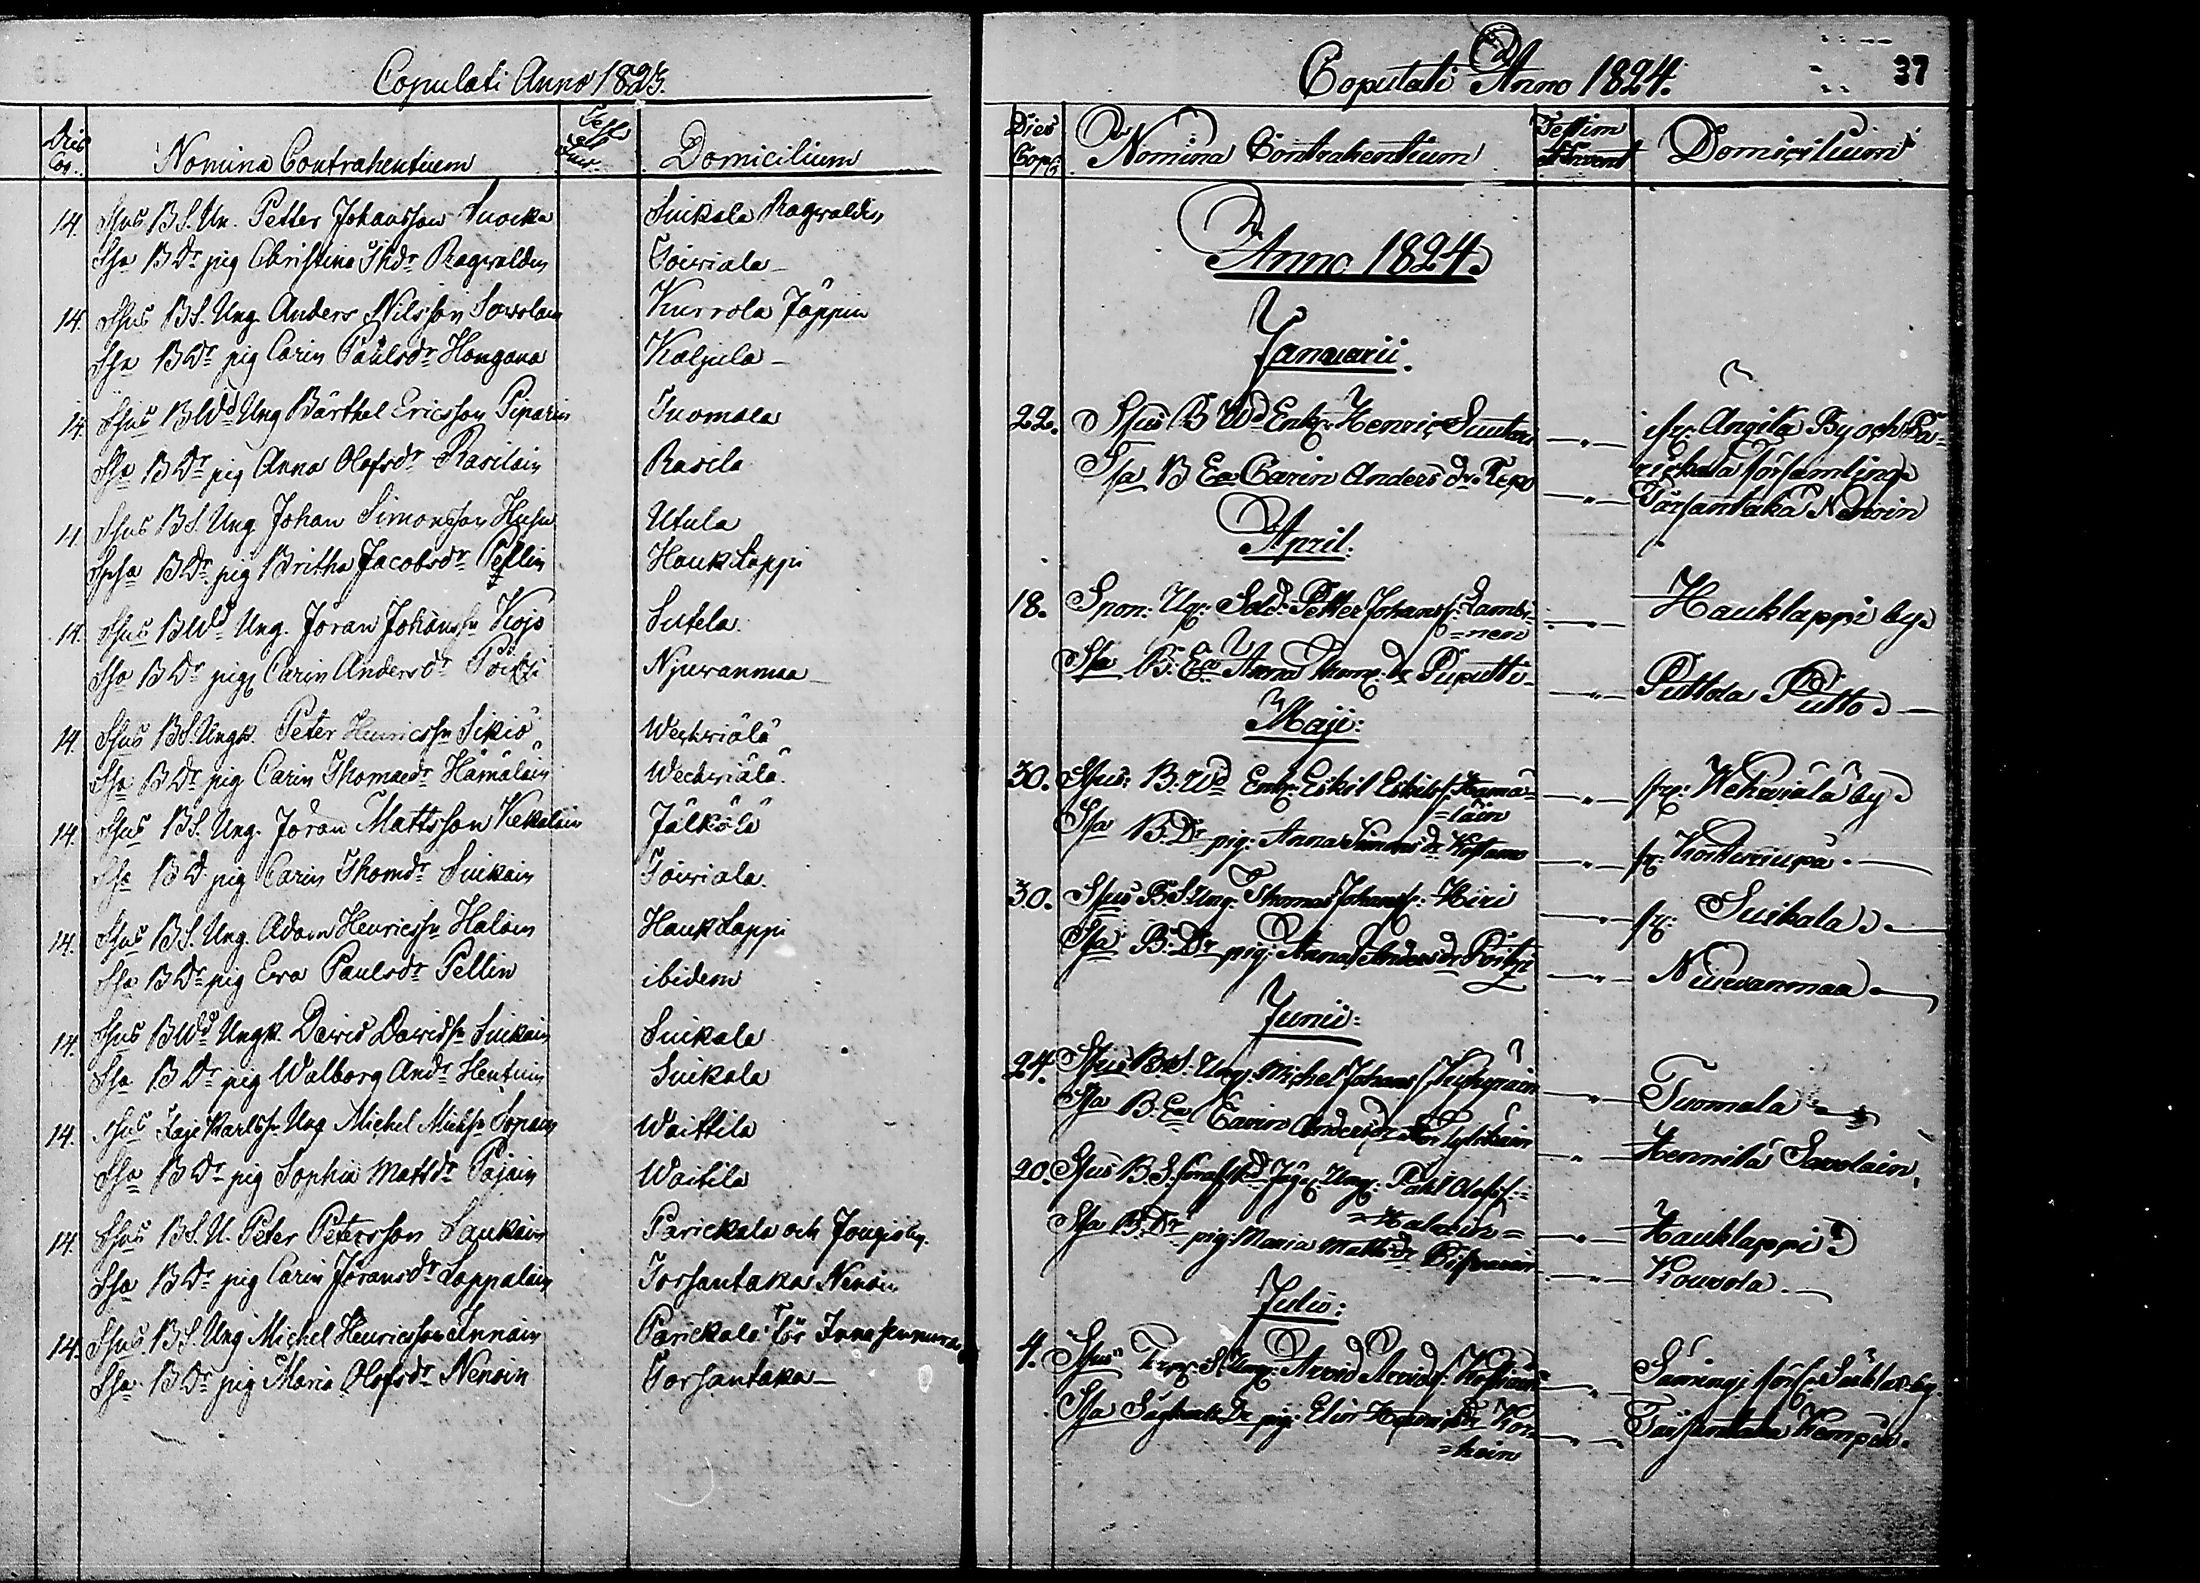 Copulati Anno 1823.
Dies Cop. Nomina Contrahentium Domicilium
14. Spus BS. Un. Petter Johansson Suocka Suikala Ragvaldin
Spa BDr pig Christina Thdr Ragvaldin Toiviala
14. Spus BS. Ung. Anders Nilsson Sawolain Kurrola Jäppin
Spa BDr pig Carin Paulsdr Hongana Kaljula
14. Spus BWd Ung Bärthel Ericsson Piparin Tuomala
Spa BDr pig Anna Olofsdr Rasilain Rasila
14. Spus BS. Ung. Johan Simonsson Utula
Spsa BDr pig Britha Jacobsdr Pellin HaukLappi
14. Spus BWd Ung. Jöran Johanss. Kojo Sutela
Spa BDr pig Carin Andersdr Pöitzi Njuvanmaa
14. Spus BS. Ungk. Peter Henricssn Sikiö Weckviälä
Spa BDr pig Carin Thomaedr Hämäläin Weckviälä
14. Spus BS. Ung. Jöran Mattsson Kekäläin Jälkölä
Spa BD pig Carin Thomdr Suikain Toiviala
14. Spus BS. Ung. Adam Henricssn Halain HaukLappi
Spa BDr pig Eva Paulsdr Pellin ibidem
14. Spus BWd Ungk. David Davidssn Suikain Suikala
Spa BDr pig Walborg Andr Hentuin Suikala
14. Spus Karlssn Ung Michel Michssn Sopain Waittila
Spa BDr pig Sophia Mattsdr Pajain Waitila
14. Spus BS. U. Peter Petersson Saukain Parickala och Jougio by.
Spa BDr pig Carin Jöransdr Lappalain Torsantaka Nenoin
14. Spus BS. Ung Michel Henricsson Innain Parickala För
Spa BDr pig Maria Olofsdr Nenoin Torsantaka
37
Copulati Anno 1824.
Dies Cop. Nomina Contrahentium Testim Domicilium
Anno 1824
Januarii.
22. Spus B Wd Enk. Henric Suutari fr. Angila By och Pa-
rickala församling
Spa B Ea Carin Andersdr Repo Torsantaka Nenoin
April:
18. Spon: Ug: Sold: Petter Johanss: Lambi-
=nen Hauklappi by
Spa B: Ea Anna Puputti Puttola Putto
Maji:
30. Spus: B: Wd Enk: Eskil Eskilss. Hämä-
=läin fr: Wekwiälä by
Spa B. Dr pig: Anna Simonsdr
30. Spus B. S. Ung: Thomas Johanss: Hiri fr: Suikala
Spa B: Dr pig: Anna Andersdr Pöitzi Niuvanmaa
Junii:
24. Spus B. S. Ung: Michel Johanss Tuomala
Spa B. Ea Carin Andersdr Hennilä Savolain
20. Spus B. S. Ung: Pahl Olofss:
=Halain= Hauklappi
Spa B: Dr pig: Maria Mattsdr Kouvola
Julii:
4. Spus Ung: Arvid Arvidss: Säminge förs:
Spa Dr pig: Elin Henricsdr Kor-
=hoin Torsantaka Kempä